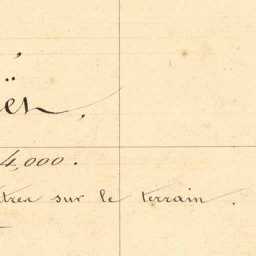 ën,
4,000.
tres sur le terrain.